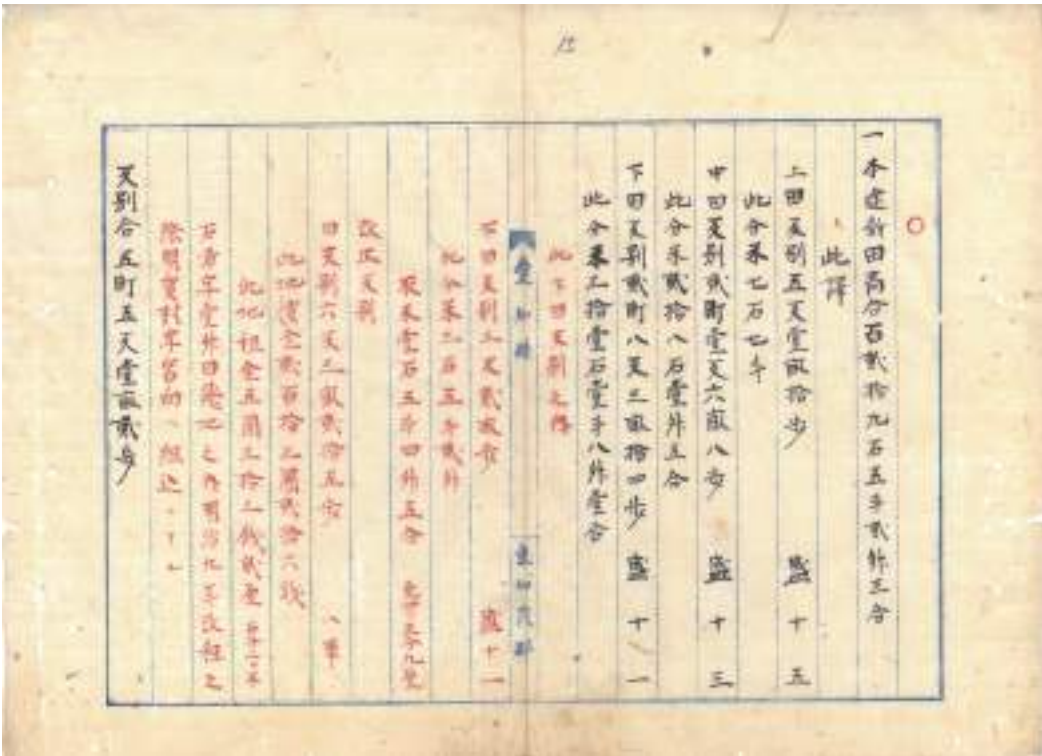 15
一本途新田高合百貳拾九石五斗貳舛三合
此譯
上田反別五反壹畝拾歩 盛十五
此分米七石七斗
中田反別貳町壹反六畝八歩 盛十三
此分米貳拾八石壹舛五合
下田反別貳町八反三畝拾四歩 盛十一
此分米三拾壹石壹斗八舛壹合
此下田反別之
下田反別三反貳畝歩 盛十一
此分米三石五斗貳舛
取米壹石五斗四舛五合
改正反別
田反別六反三畝貳拾五歩 八筆
此地價金貳百拾三圓貳拾六銭
此地租金五圓三拾三銭貳厘
右者年壹舛田 之 明治九年改租之
際明 村 組込
反別合五町五反壹畝貳歩